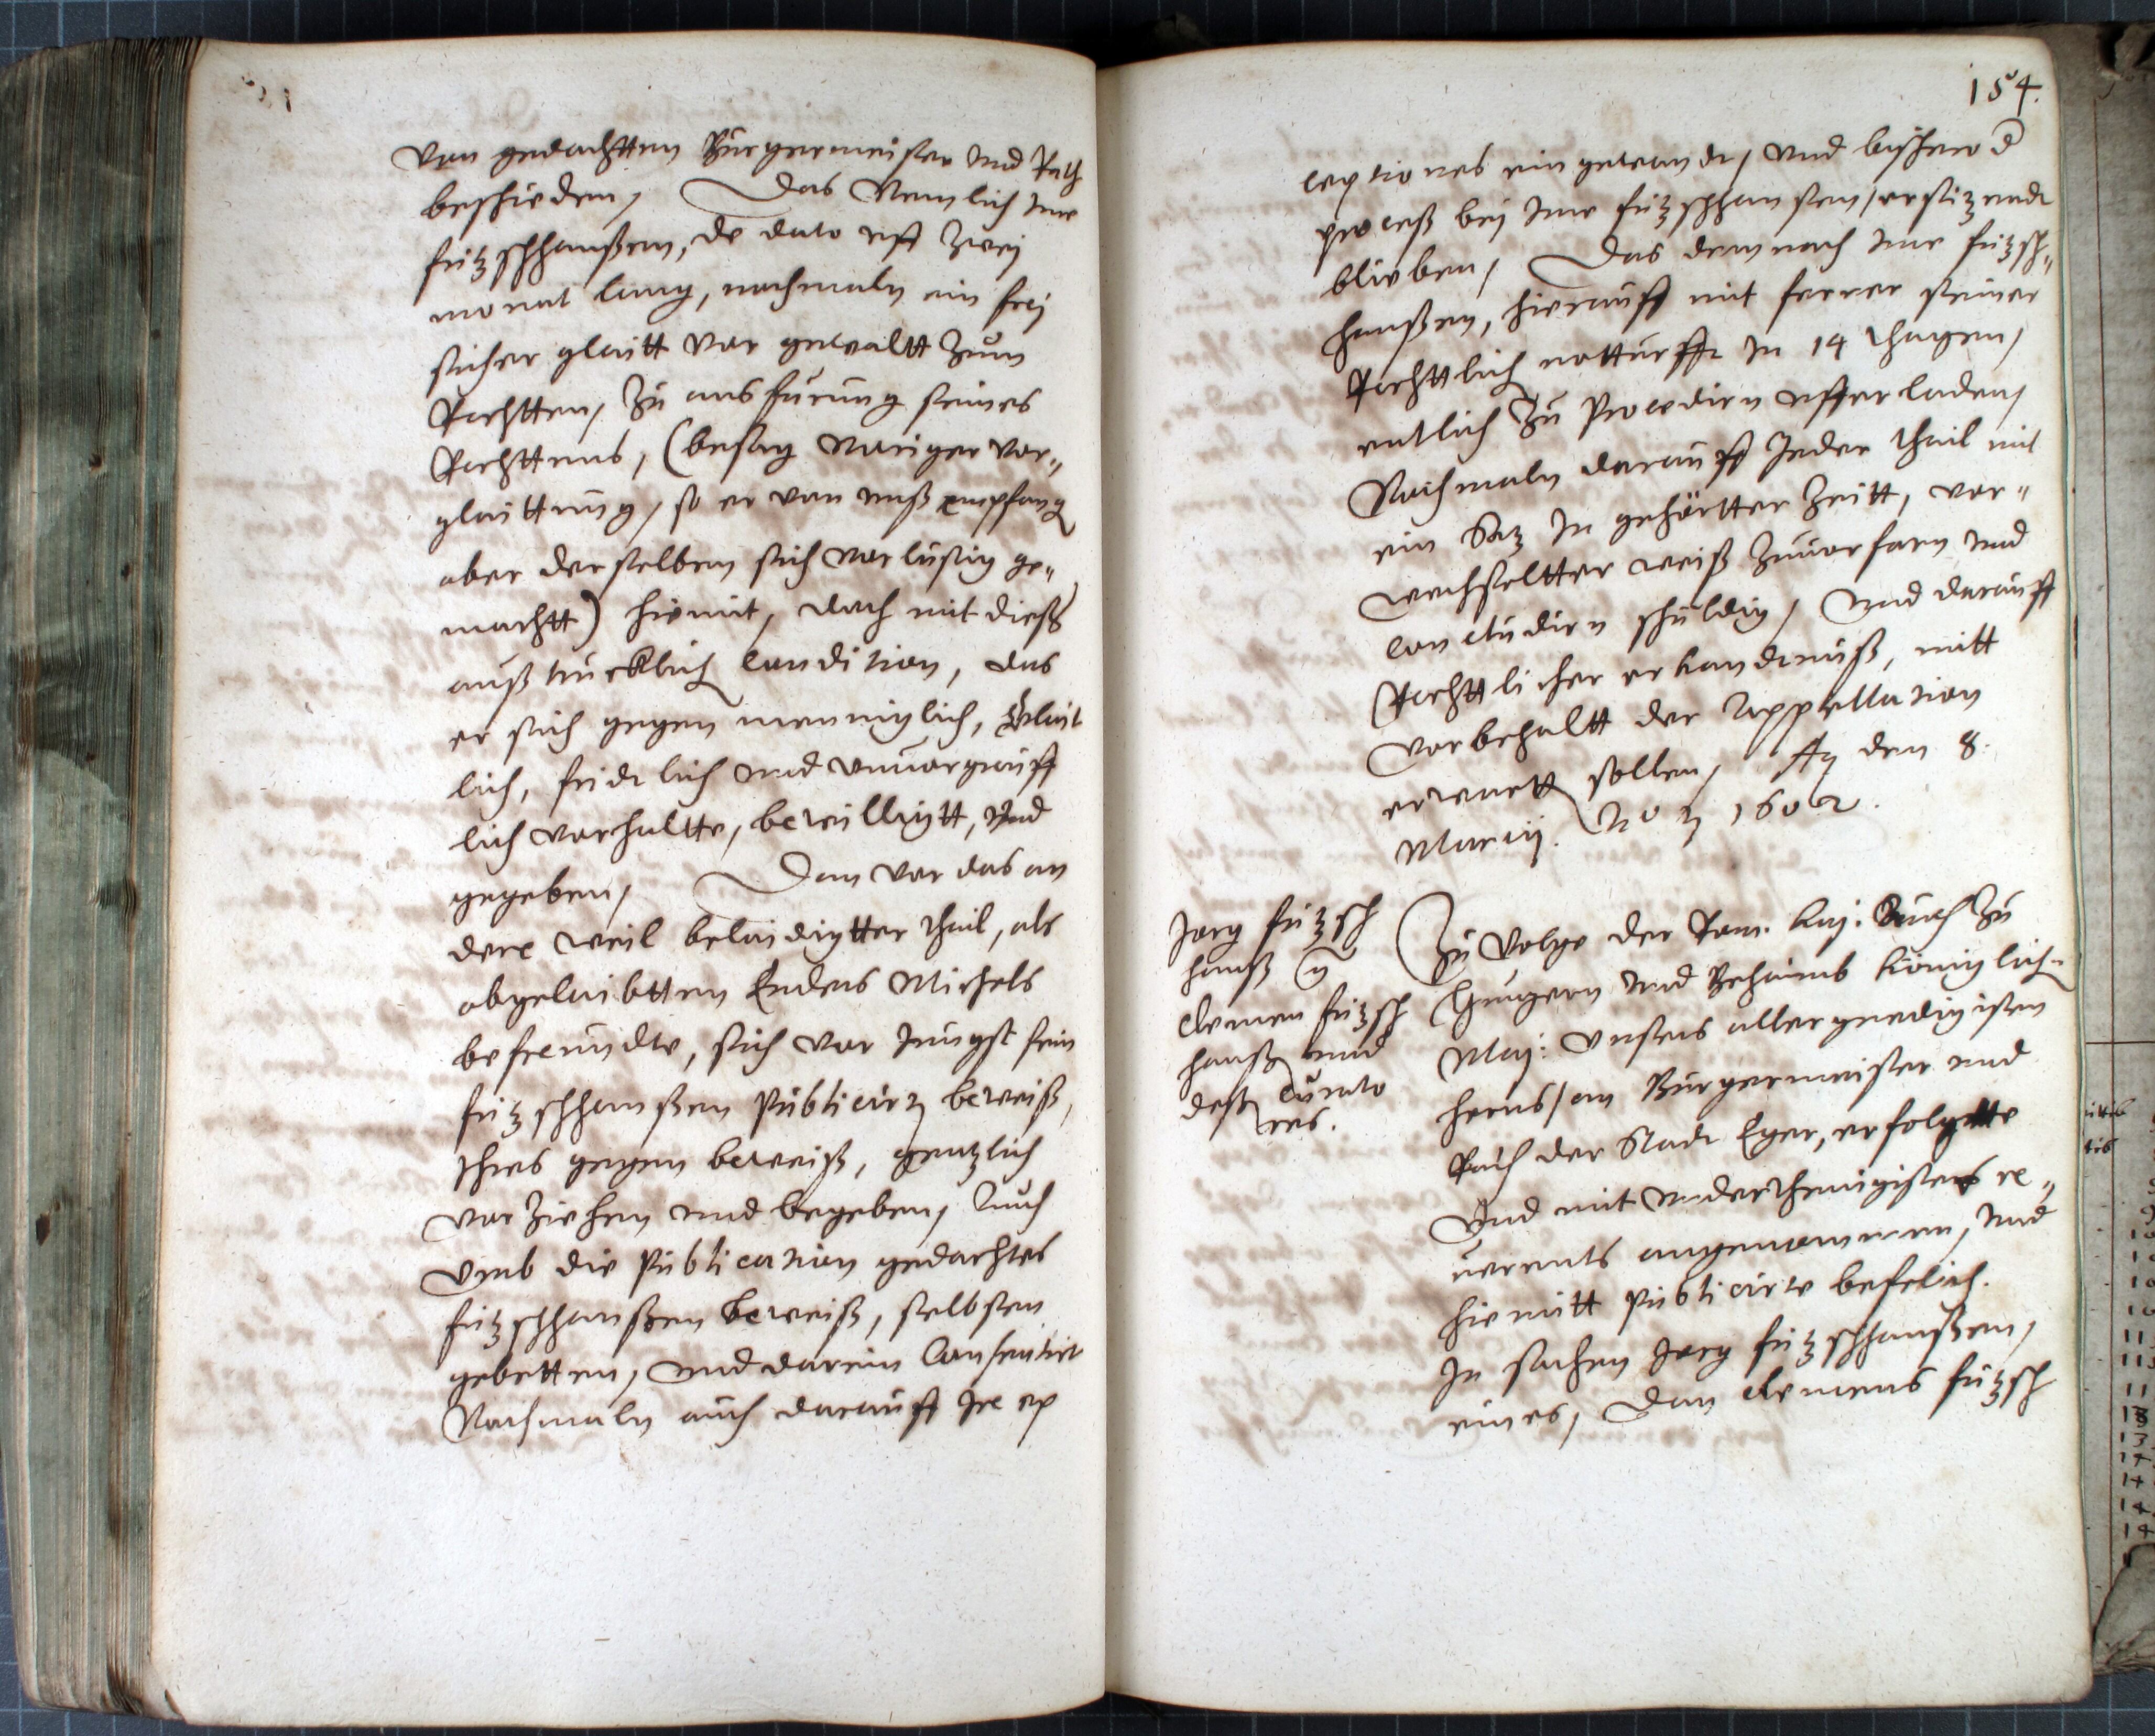 von gedachtten Bürgermeister und Rath
beschieden, Das Nemlich Ime
fützschhaußen, de dato uff Zwei
monat lang, nachmaln ein frej
sicher glaitt vor gewaltt Zum
Rechtten, Zu ausfürung seines
Rechttens, (besag voriger ver„
glaittung, so er von unß empfang
aber derselben sich verlustig ge„
machtt) hiemit, doch mit dießer
außtrücklich condition, das
er sich gegen menniglich, glait
lich, fridtlich und unvorgreiff
lich verhaltte, bewilligtt, und
gegeben, Dan vor das an
dere weil belaidigtter thail, als
abgelaibtten Enders Michels
befreundte, sich vor Jüngst sein
fützschhaußen publicirtz beweiß,
Ihres gegen beweiß, gentzlich
verziehen und begeben, Auch
Umb die publication gedachtes
fützschhaußen beweiß, selbsten
gebetten, und darein Consentirt
Nachmaln auch darauff Ire ex
154.
ceptiones eingewandt, und bißhero d
proceß bej Ime fützschhaußen, ersitzendt
blieben, Das demnach Ime fützsch„
haußen, hierauff mit ferner seiner
Rechttlich notturfft In 14 thagen,
entlich Zu Procedirn ufferladen,
Nachmaln darauff Jeder thail mit
ein Satz In gehörtter Zeitt, ver„
wechseltter weiß Zuverfarn und
concludirn schuldig, Und darauff
Rechttlicher erkandtnuß, mitt
Vorbehaltt der Appellation
erwartt sollen, Act den 8.
Marcij. Ao 1602.
Jorg fützsch
hauß
clemen fützsch
hauß und
deß curato
res.
Zu Volge der Rom. Kaj: Auch Zu
Hungern und Behaimb Königlich„
Maj: Unsers allergnedigisten
herns, an Bürgermeister und
Rath der Stadt Eger, erfolgtte
Und mit underthenigister re„
uerents angenommen, und
hiemitt publicirte befelich.
In sachen Jorg fützschhaußen,
eines, Dan clemens fützsch